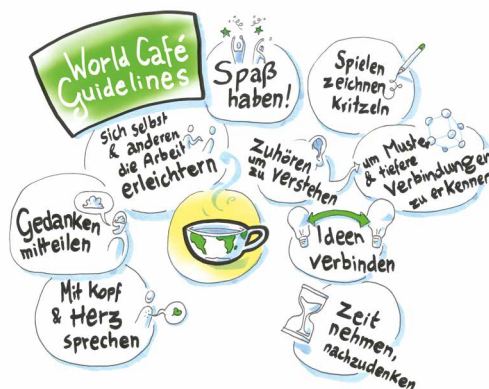 World Café
Guidelines
Spaß
haben!
Spielen
zeichnen
Kritzeln
sich selbst
& anderen
die Arbeit
erleichtern
Zuhören
um zu
verstehen
um Muster
& tiefere
Verbindungen
zu erkennen
Gedanken
mitteilen
Ideen
verbinden
Mit Kopf
& Herz
sprechen
Zeit
nehmen,
nachzudenken